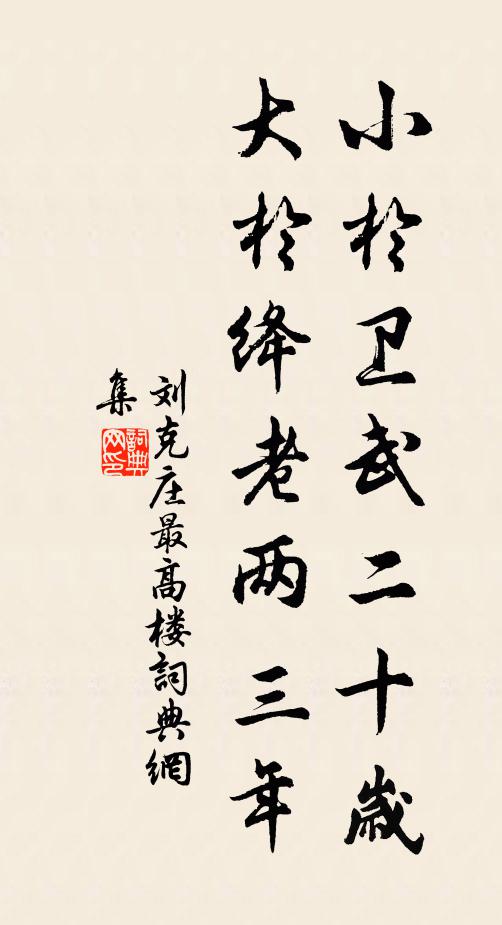 小於卫武二十歲
大於绛老两三年
刘克庄最高楼詞典網
集
詞典
网印